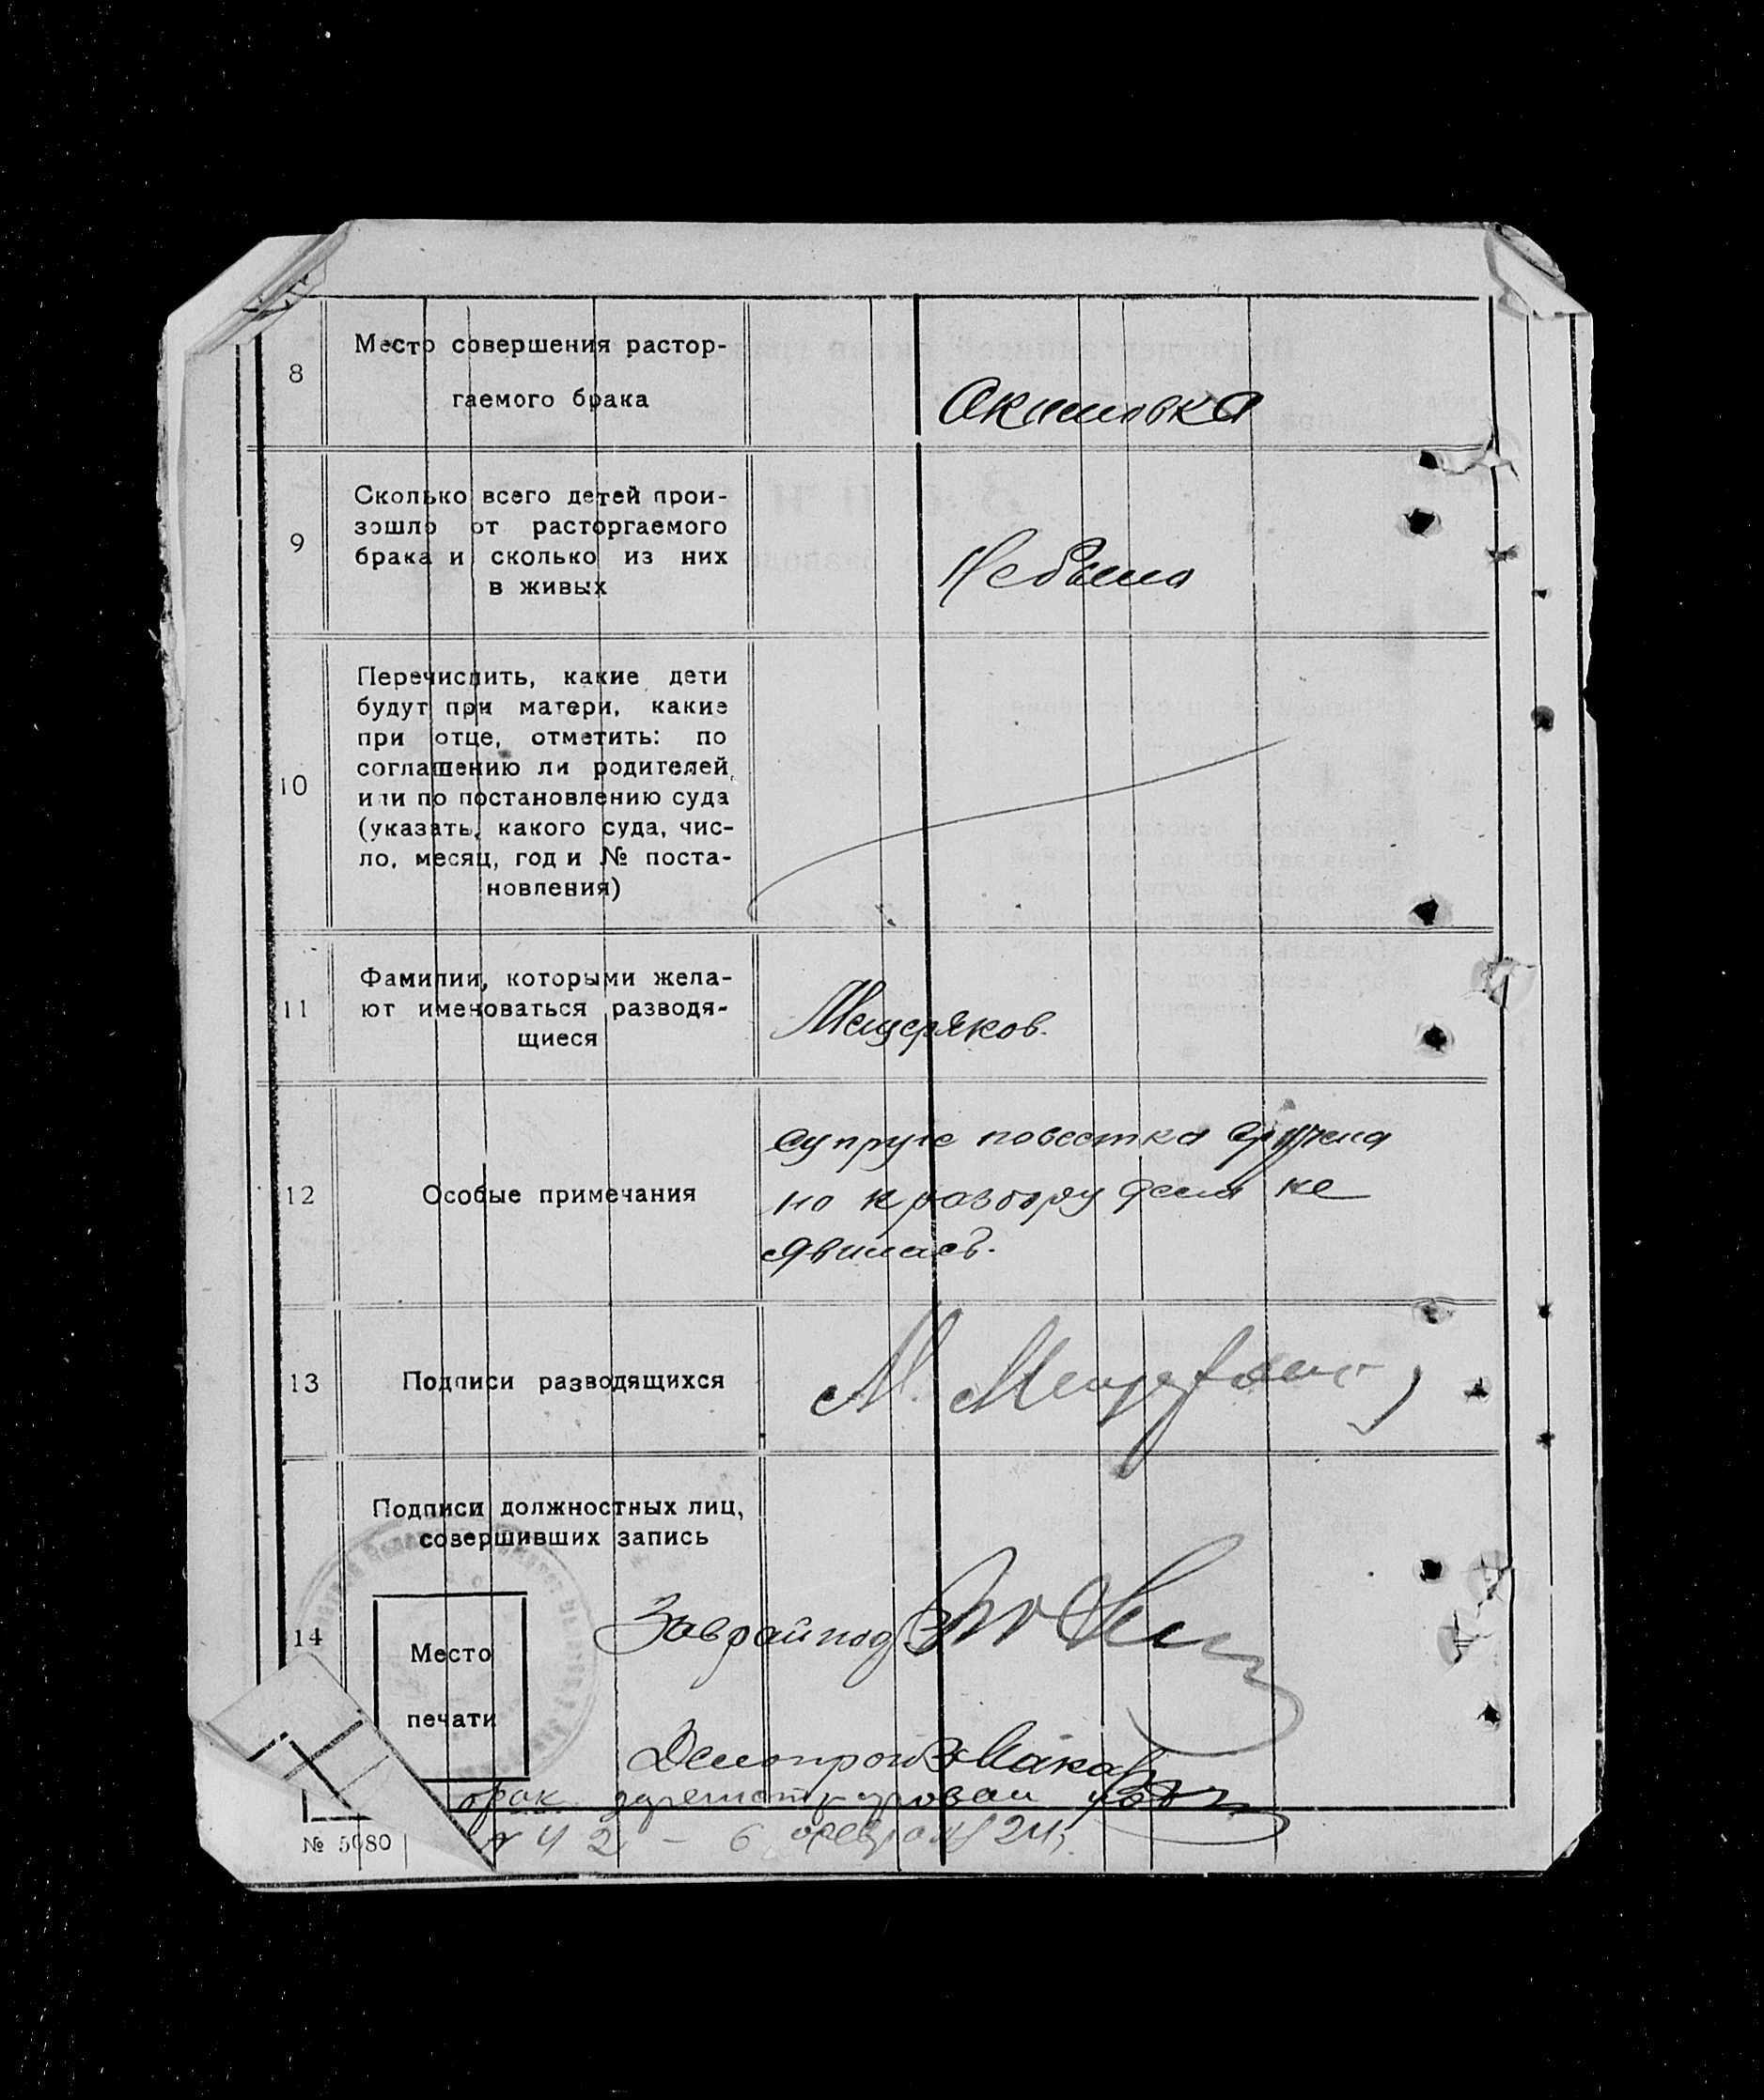 8
Место совершения растор-
гаемого брака
Акимовка
9
Сколько всего детей прои-
зошло от расторгаемого
брака и сколько из них
в живых
Небыло
10
Перечислить, какие дети
будут при матери, какие
при отце, отметить: по
соглашению ли родителей,
или по постановлению суда
(указать, какого суда, чис-
ло, месяц, год и № поста-
новления)
11
Фамилии, которыми жела-
ют именоваться разводя-
щиеся
Мещеряков.
12
Особые примечания
Супруге повестка вручена
но к разбору дела не
явилась.
13
Подписи разводящихся
М. Мещеряков
14
Подписи должностных лиц,
совершивших запись
Место
печати
Заврайпод
Делопроизв
брак зарегистрирован
42 – 6 февраля 24
№ 5080